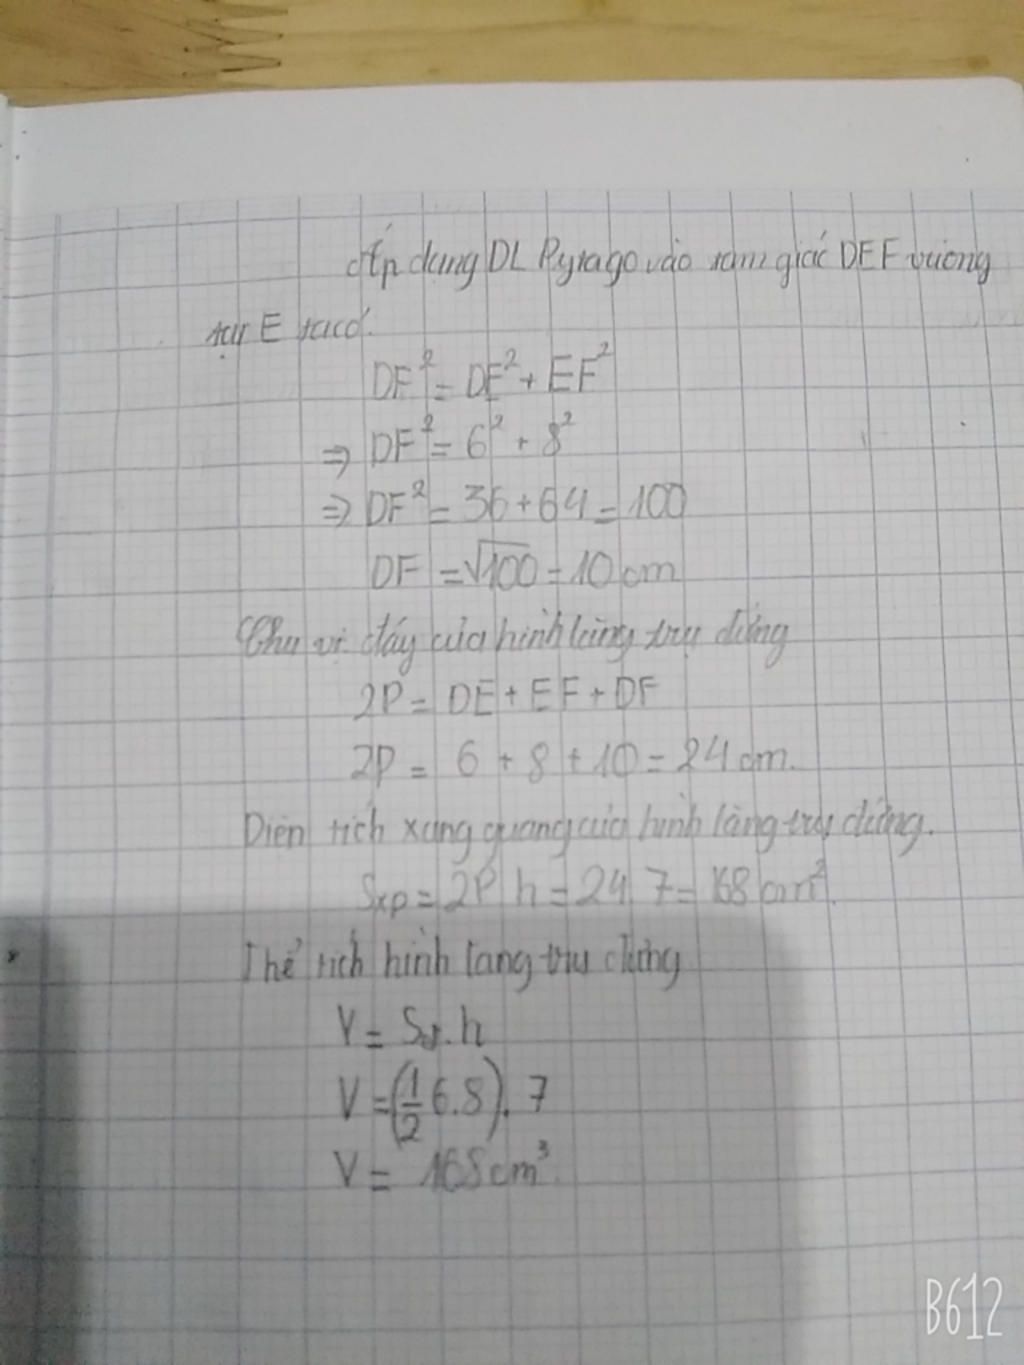 Áp dụng DL Pytago vào tam giác DEF vuông
tại E ta có:
DF² = DE² + EF²
⇒ DF² = 6² + 8²
⇒ DF² = 36 + 64 = 100
DF = √100 = 10 cm
Chu vi đáy của hình lăng trụ đứng
2P = DE + EF + DF
2P = 6 + 8 + 10 = 24 cm.
Diện tích xung quang của hình lăng trụ đứng.
Sxp = 2P h = 24.7 = 168 cm².
Thể tích hình lăng trụ đứng
V = Sđ.h
V = (1/2 6.8).7
V = 168 cm³.
B612